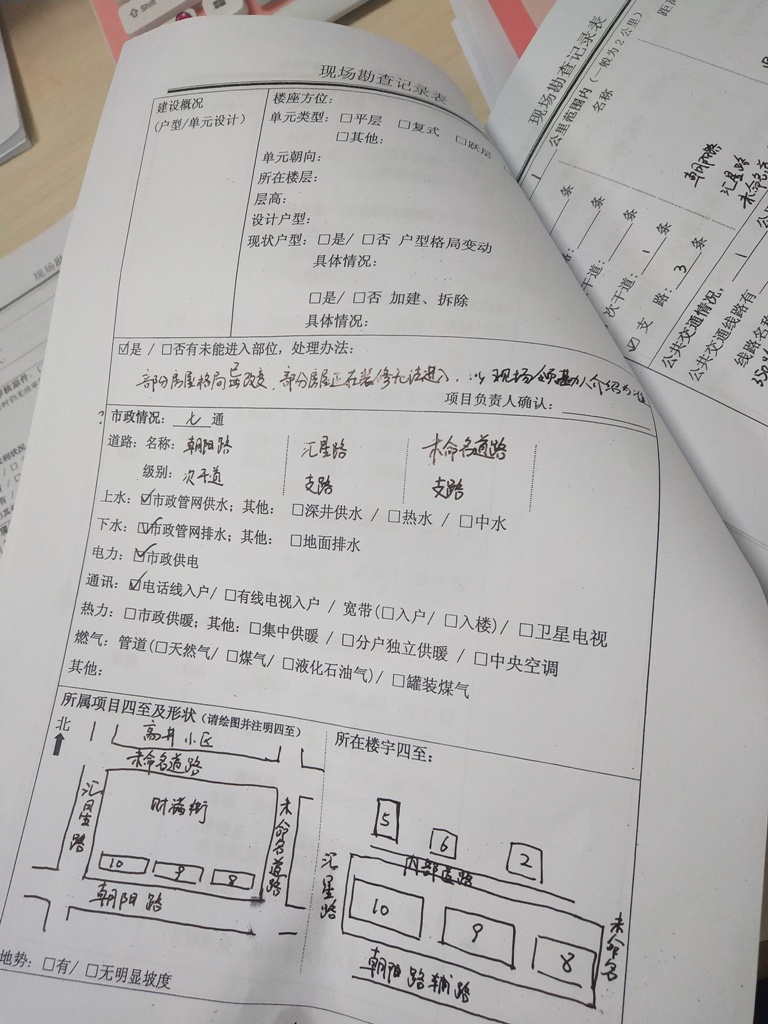 现场勘查记录表
建设概况
(户型/单元设计)
楼座方位:
单元类型: □平层 □复式 □跃层
□其他:
单元朝向:
所在楼层:
层高:
设计户型:
现状户型: □是/ □否 户型格局变动
具体情况:
□是/ □否 加建、拆除
具体情况:
☑是 / □否有未能进入部位, 处理办法:
部分房屋格局已改变, 部分房屋正在装修无法进入, 以现场
项目负责人确认:
?
市政情况: 七 通
道路: 名称: 朝阳路 汇星路 未命名道路
级别: 次干道 支路 支路
上水: ☑市政管网供水; 其他: □深井供水 / □热水 / □中水
下水: ☑市政管网排水; 其他: □地面排水
电力: ☑市政供电
通讯: ☑电话线入户/ □有线电视入户 / 宽带(□入户/ □入楼)/ □卫星电视
热力: □市政供暖; 其他: □集中供暖 / □分户独立供暖 / □中央空调
燃气: 管道(□天然气/ □煤气/ □液化石油气)/ □罐装煤气
其他:
所属项目四至及形状 (请绘图并注明四至)
北
高井小区
未命名道路
汇星路
财满街
未命名道路
10 9 8
朝阳路
所在楼宇四至:
5 6 2
内部道路
汇星路
10 9 8
未命名
朝阳路辅路
地势: □有/ □无明显坡度
现场勘查记录表
公里范围内 (一般为2公里)
名称
朝阳路
汇星路
未命名道
条
条
次干道: 1 条
☑支 路: 3 条
公共交通情况,
公共交通线路有 1
线路名称
350
Shift
现场勘